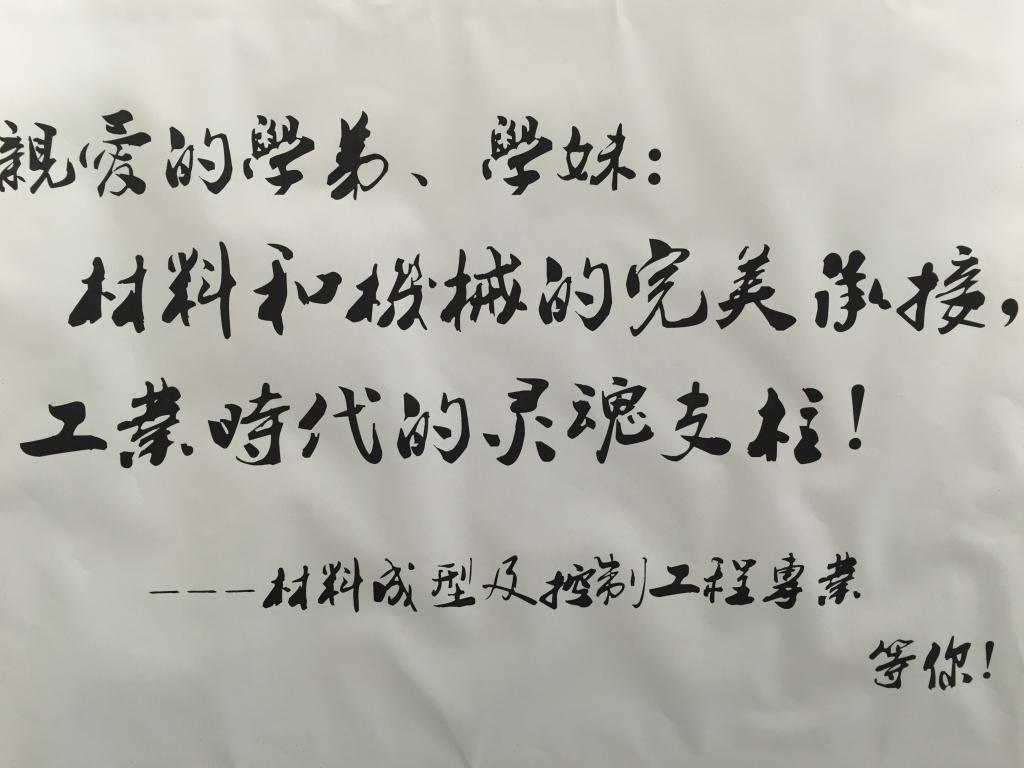 親愛的學弟、學妹：
材料和機械的完美承接，
工業時代的灵魂支柱！
---材料成型及控制工程專業
等你！